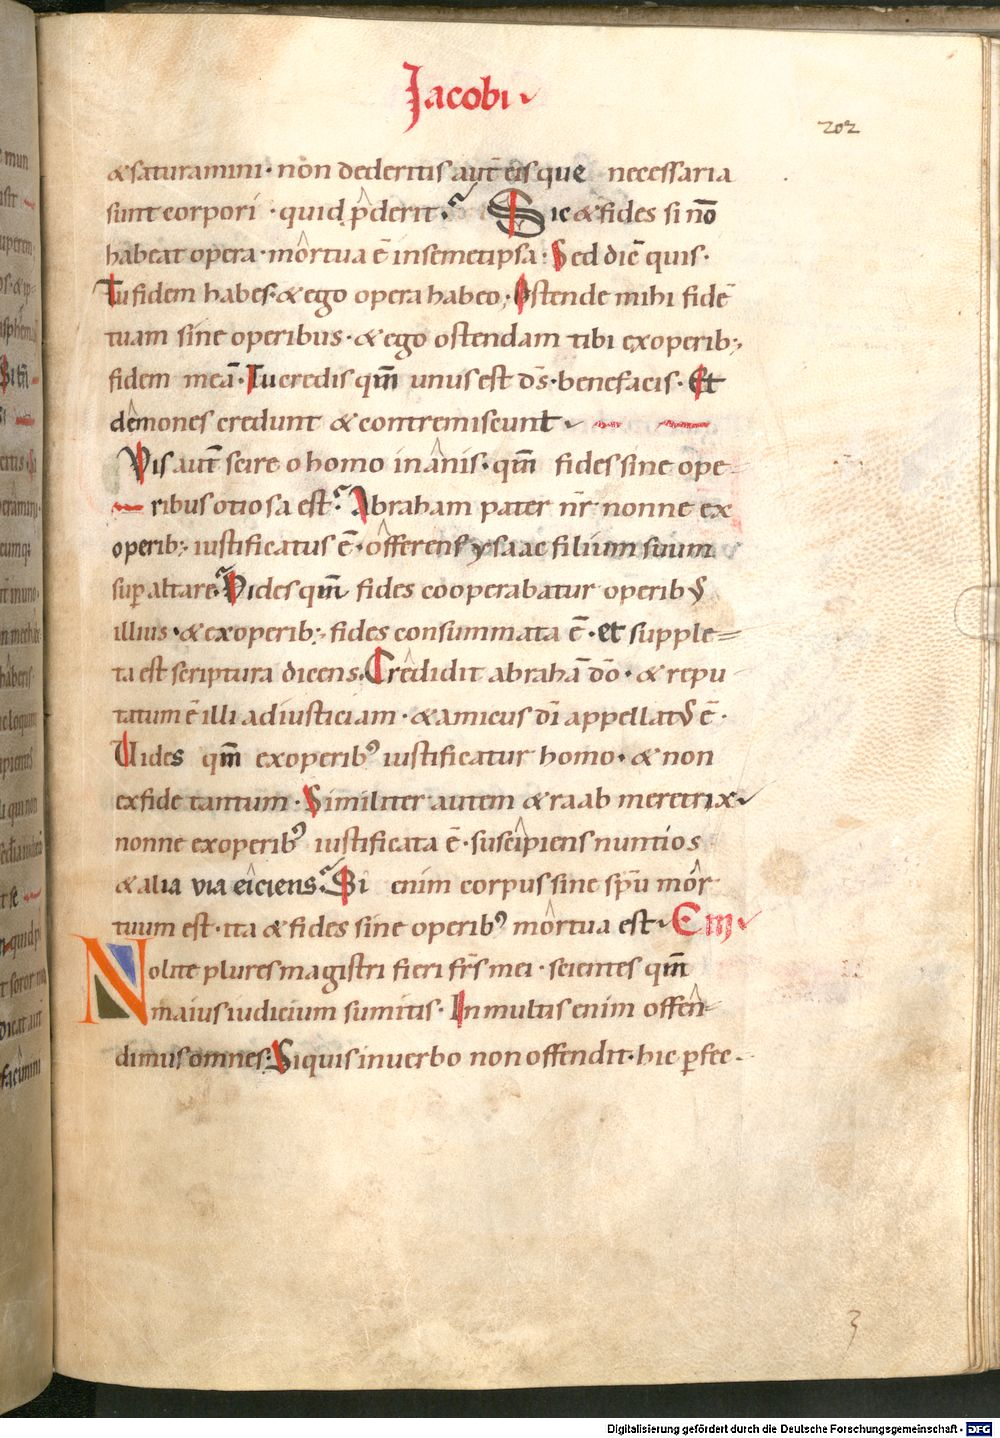 Jacobi
202
& saturamini · non dederitis aut̄ eis que necessaria
sunt corpori · quid p̄derit · Sic & fides si nō
habeat opera · mortua ē in semetipsa · Sed dic̄ quis ·
Tu fidem habes · & ego opera habeo · Ostende mihi fidē
tuam sine operibus · & ego ostendam tibi ex operib;
fidem meā · Tu credis qm̄ unus est d̄s · benefacis · Et
demones credunt & contremiscunt
Vis aut̄ scire o homo inanis · qm̄ fides sine ope-
ribus otiosa est · Abraham pater nr̄ nonne ex
operib; iustificatus ē · offerens ysaac filium suum
sup altare · Vides qm̄ fides cooperabatur operibꝰ
illius · & ex operib; fides consummata ē · et supple=
ta est scriptura dicens · Credidit abrahā dō · & repu-
tatum ē illi ad iusticiam · & amicus dī appellatꝰ ē ·
Uides qm̄ ex operibꝰ iustificatur homo · & non
ex fide tantum · Similiter autem & raab meretrix
nonne ex operibꝰ iustificata ē · suscipiens nuntios
& alia via eiciens · Si enim corpus sine spū mor-
tuum est · ita & fides sine operibꝰ mortua est · Em
Nolite plures magistri fieri fr̄s mei · scientes qm̄
maius iudicium sumitis · In multis enim offen-
dimus omnes · Si quis in verbo non offendit · hic pfec-
3
Digitalisierung gefördert durch die Deutsche Forschungsgemeinschaft - DFG